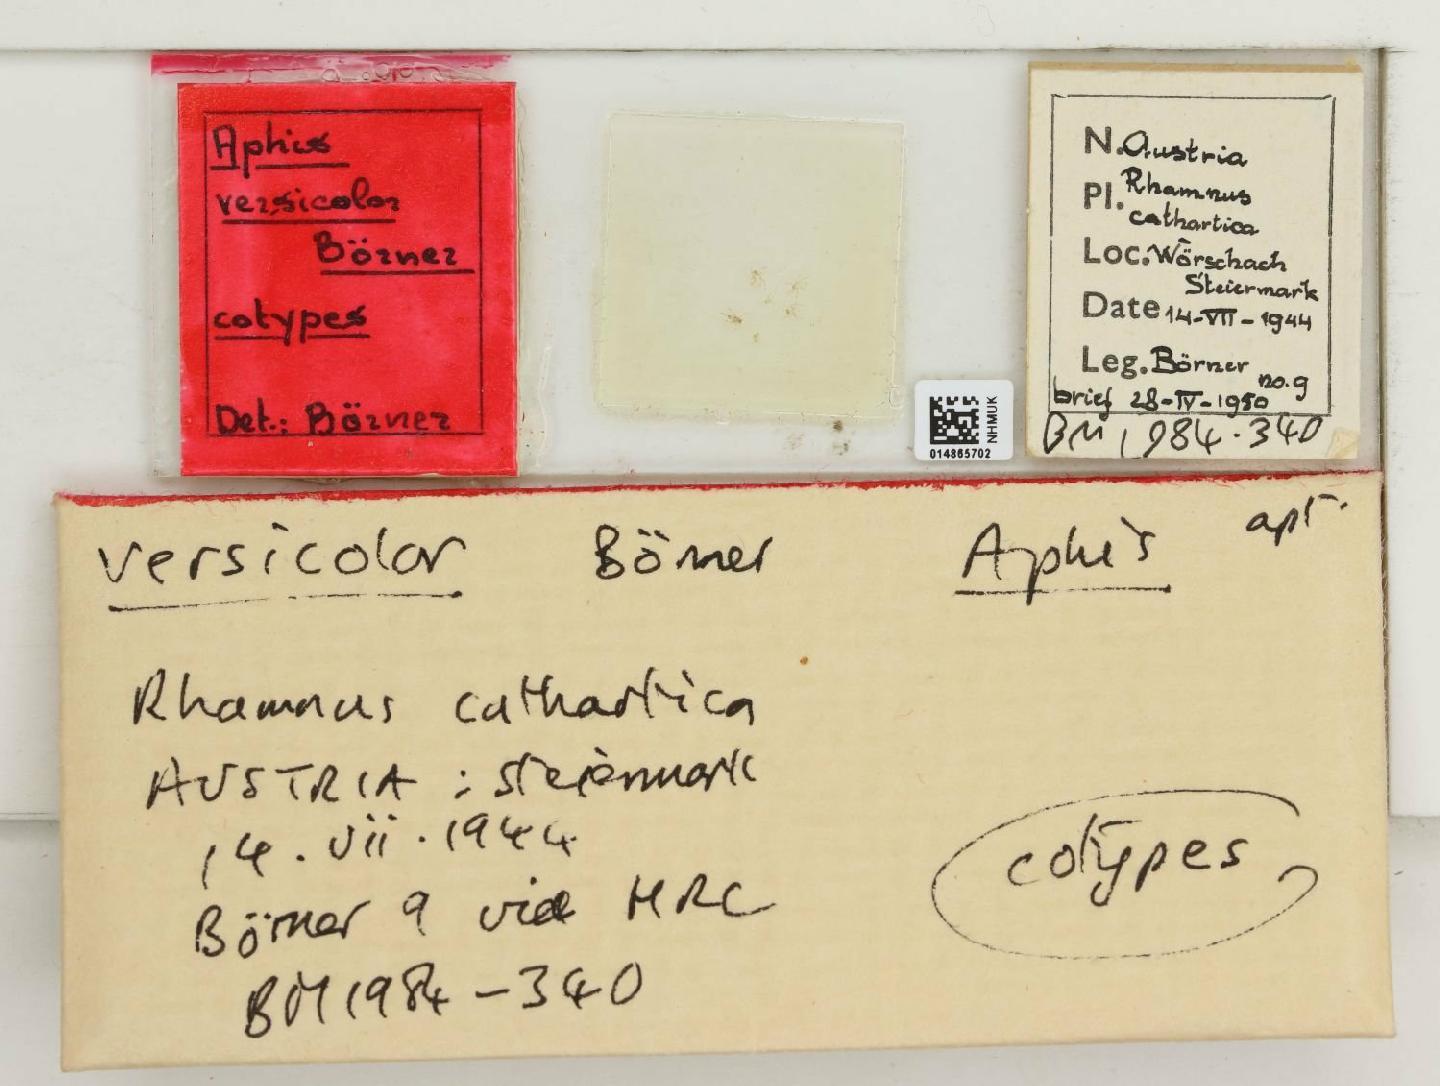 Aphis
versicolor
Börner
cotypes
Det.: Börner
NHMUK
014865702
N. Austria
Pl. Rhamnus
cathartica
Loc. Wörschach
Steiermark
Date 14-VII-1944
Leg. Börner no. 9
brief 28-IV-1950
BM 1984-340
versicolor Börner Aphis apt.
Rhamnus cathartica
AUSTRIA : Steiermark
14.vii.1944
Börner 9 via HRL
BM 1984-340
cotypes